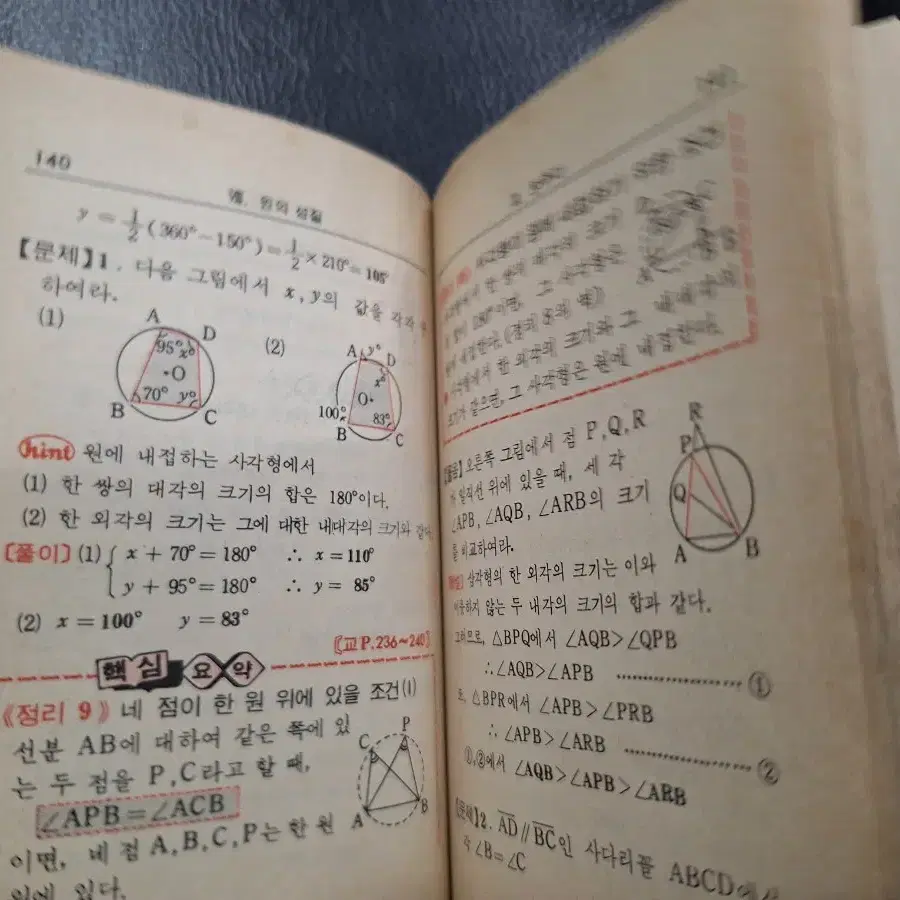 140
Ⅷ. 원의 성질
y = 1/2 (360° − 150°) = 1/2 × 210° = 105°
【문제】1. 다음 그림에서 x, y의 값을 각각
하여라.
(1) A D 95° x° O 70° y° B C
(2) A y° D x° O 100° 83° B C
hint 원에 내접하는 사각형에서
(1) 한 쌍의 대각의 크기의 합은 180°이다.
(2) 한 외각의 크기는 그에 대한 내대각의 크기와 같다.
〔풀이〕(1) { x + 70° = 180° ∴ x = 110°
y + 95° = 180° ∴ y = 85°
(2) x = 100° y = 83°
〔교 P. 236~240〕
핵심 요약
《정리 9》 네 점이 한 원 위에 있을 조건(1)
선분 AB에 대하여 같은 쪽에 있
는 두 점을 P, C라고 할 때,
∠APB = ∠ACB
이면, 네 점 A, B, C, P는 한 원
위에 있다.
C P A B
사각형에서 한 외각의 크기와 그 내대각의
크기가 같으면, 그 사각형은 원에 내접한다.
오른쪽 그림에서 점 P, Q, R
가 일직선 위에 있을 때, 세 각
∠APB, ∠AQB, ∠ARB의 크기
를 비교하여라.
R P Q A B
삼각형의 한 외각의 크기는 이와
이웃하지 않는 두 내각의 크기의 합과 같다.
그러므로, △BPQ에서 ∠AQB > ∠QPB
∴ ∠AQB > ∠APB ……………… ①
또, △BPR에서 ∠APB > ∠PRB
∴ ∠APB > ∠ARB ……………… ②
①, ②에서 ∠AQB > ∠APB > ∠ARB
【문제】2. AD // BC인 사다리꼴 ABCD에서
각 ∠B = ∠C